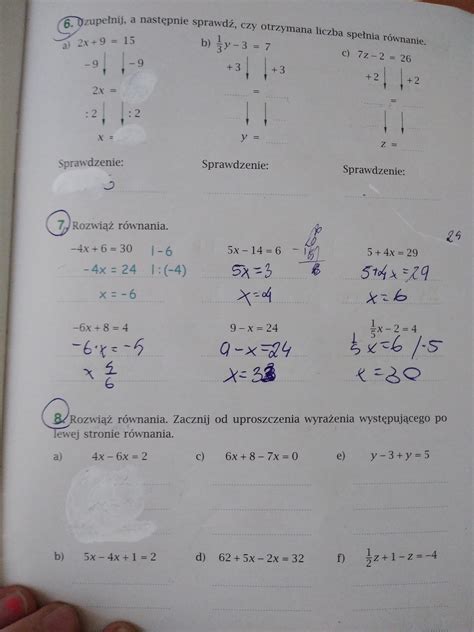 6. Uzupełnij, a następnie sprawdź, czy otrzymana liczba spełnia równanie.
a) 2x + 9 = 15
b) 1/3 y − 3 = 7
c) 7z − 2 = 26
−9 −9
+3 +3
+2 +2
2x =
=
=
:2 :2
x =
y =
z =
Sprawdzenie:
Sprawdzenie:
Sprawdzenie:
7. Rozwiąż równania.
−4x + 6 = 30 | −6
−4x = 24 | :(−4)
x = −6
5x − 14 = 6
5x = 3
x = 4
5 + 4x = 29
5+4x = 29
x = 6
−6x + 8 = 4
9 − x = 24
9 − x = 24
1/5 x − 2 = 4
1/5 x = 6 /·5
x = 30
8. Rozwiąż równania. Zacznij od uproszczenia wyrażenia występującego po
lewej stronie równania.
a) 4x − 6x = 2
c) 6x + 8 − 7x = 0
e) y − 3 + y = 5
b) 5x − 4x + 1 = 2
d) 62 + 5x − 2x = 32
f) 1/2 z + 1 − z = −4